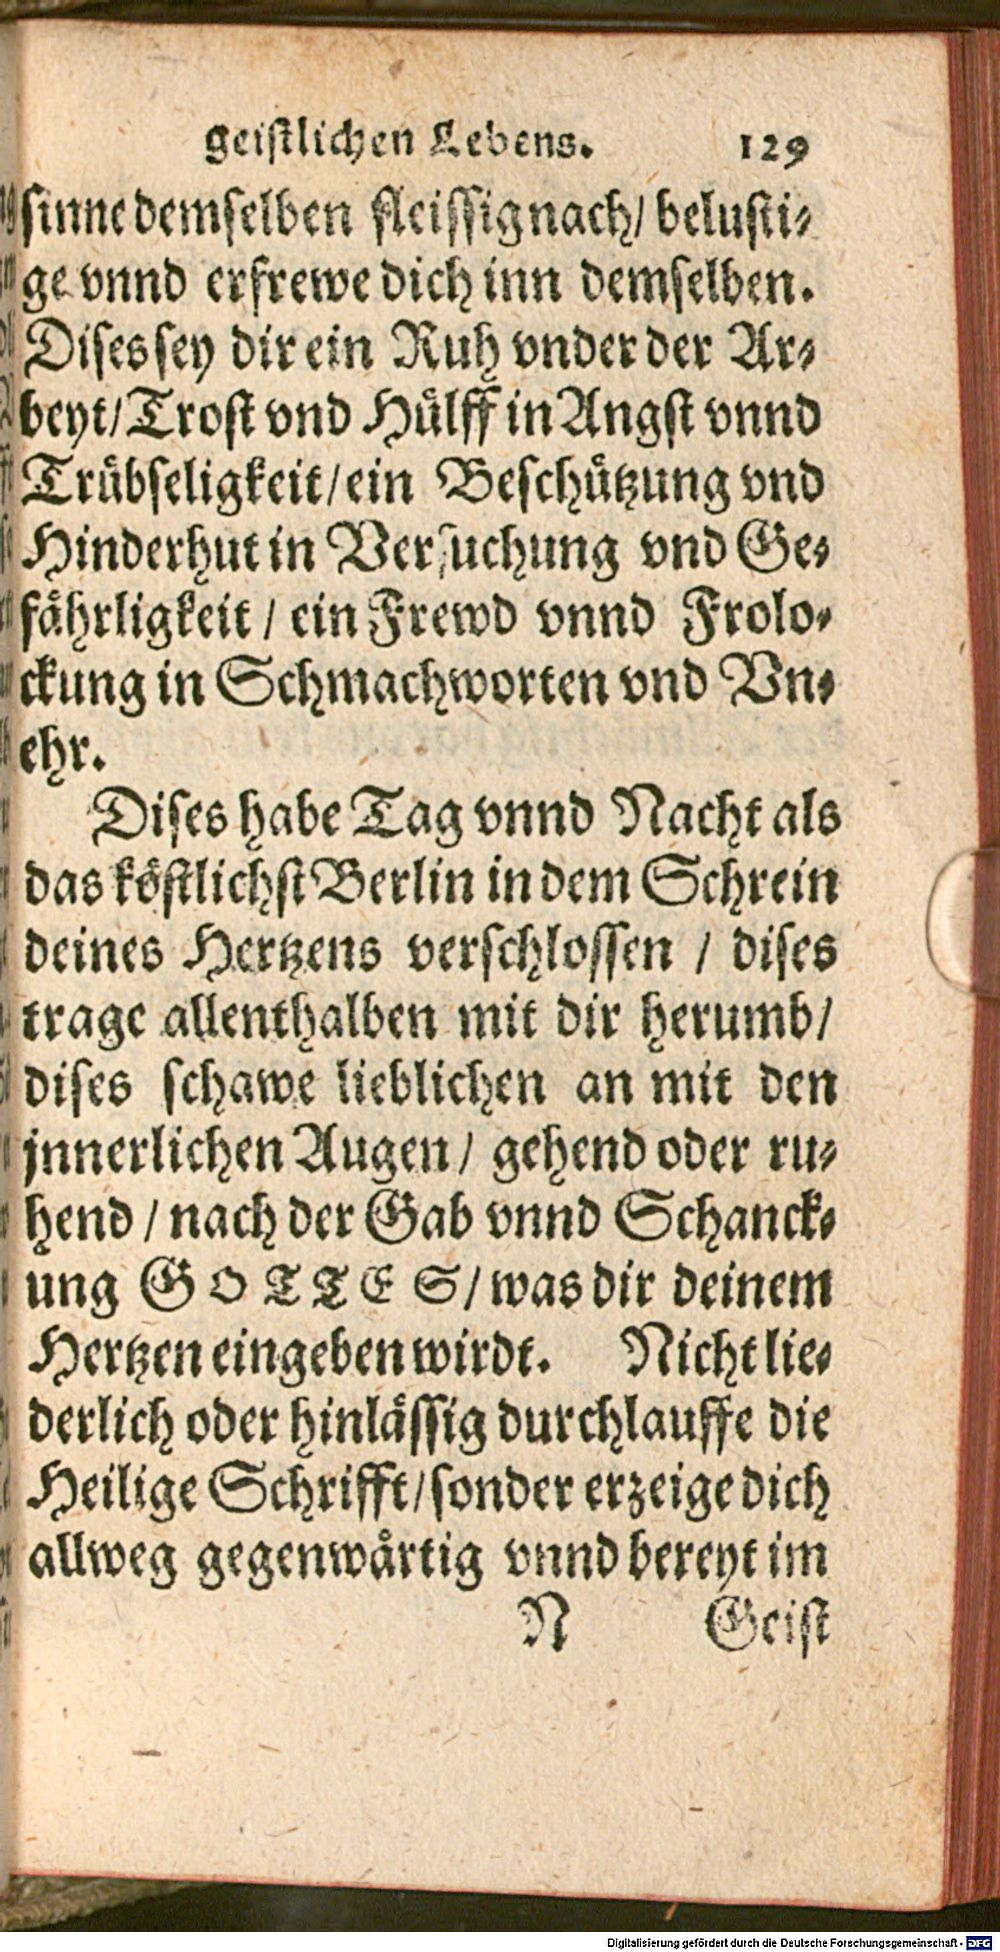 geistlichen Lebens. 129
sinne demselben fleissig nach/ belusti-
ge vnnd erfrewe dich inn demselben.
Dises sey dir ein Ruh vnder der Ar-
beyt/ Trost vnd Hülff in Angst vnnd
Trübseligkeit/ ein Beschützung vnd
Hinderhut in Versuchung vnd Ge-
fährligkeit / ein Frewd vnnd Frolo-
ckung in Schmachworten vnd Vn-
ehr.
Dises habe Tag vnnd Nacht als
das köstlichst Berlin in dem Schrein
deines Hertzens verschlossen / dises
trage allenthalben mit dir herumb/
dises schawe lieblichen an mit den
jnnerlichen Augen / gehend oder ru-
hend / nach der Gab vnnd Schanck-
ung GOTTES/ was dir deinem
Hertzen eingeben wirdt. Nicht lie-
derlich oder hinlässig durchlauffe die
Heilige Schrifft/ sonder erzeige dich
allweg gegenwärtig vnnd bereyt im
N Geist
Digitalisierung gefördert durch die Deutsche Forschungsgemeinschaft - DFG